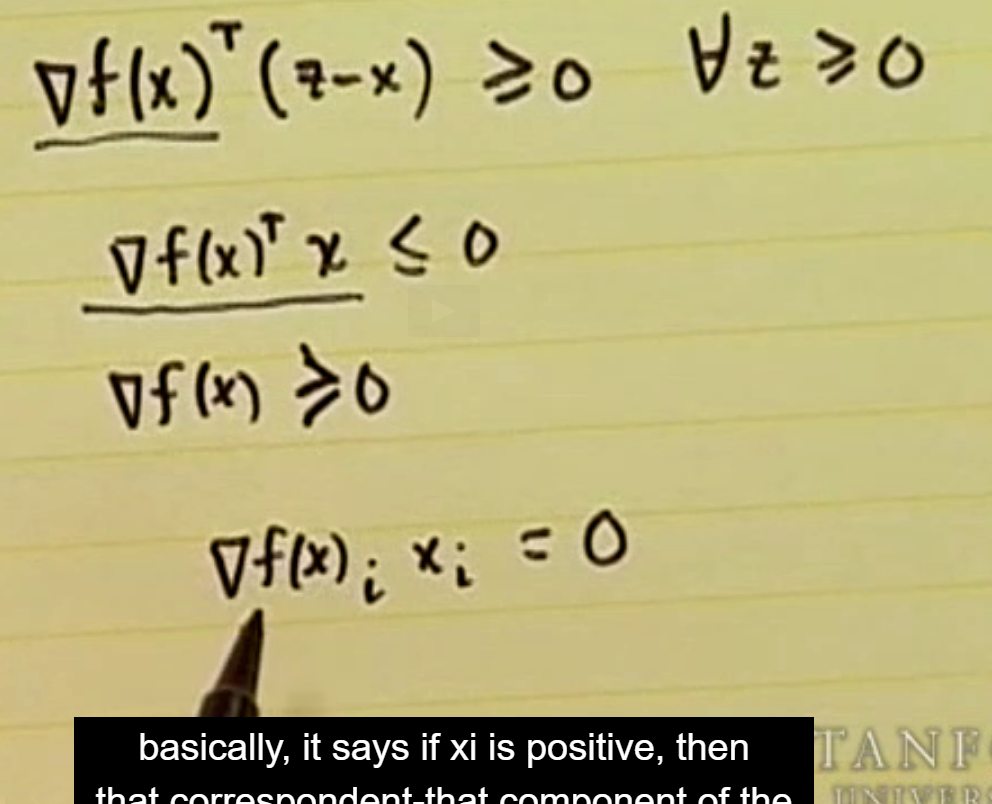 ∇f(x)ᵀ(z-x) ≥ 0 ∀z ≥ 0
∇f(x)ᵀ x ≤ 0
∇f(x) ≥ 0
∇f(x)ᵢ xᵢ = 0
basically, it says if xi is positive, then
that correspondent-that component of the